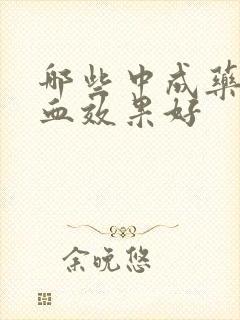 那些中成药
血效果好
余晚悠